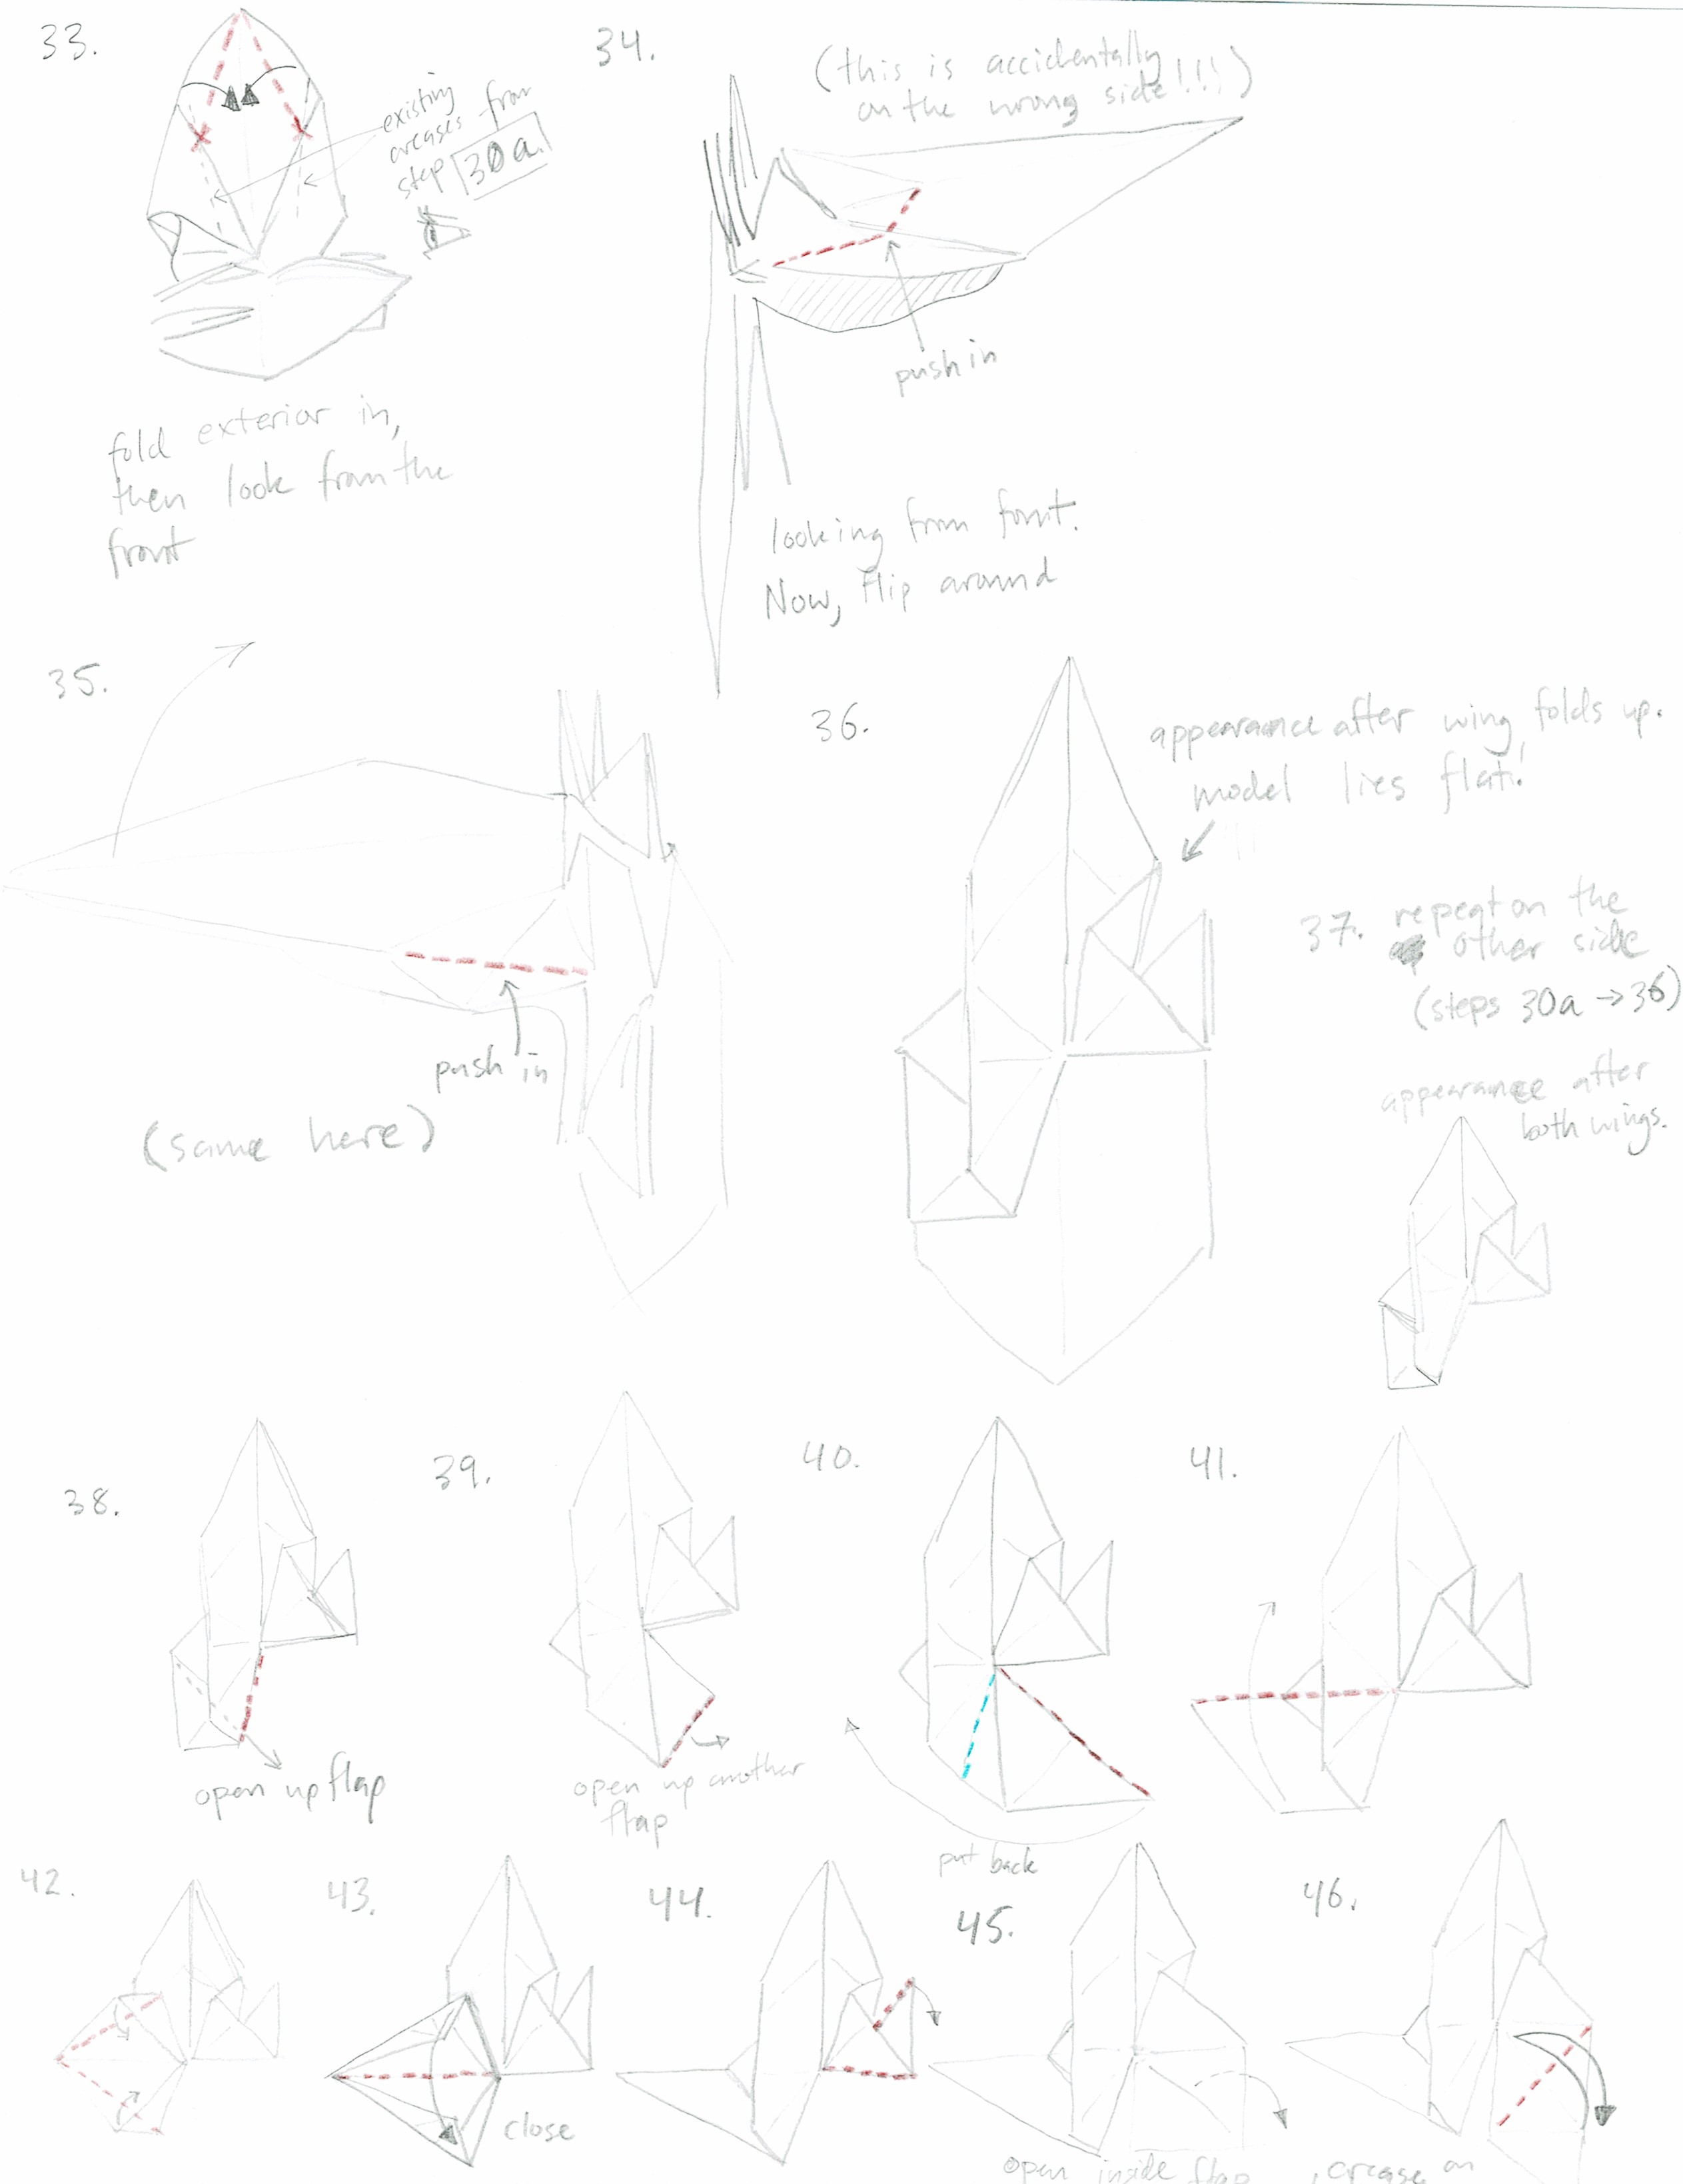 33.
existing
creases from
step 30a.
fold exterior in,
then look from the
front
34.
(this is accidentally
on the wrong side!!!)
push in
looking from font.
Now, flip around
35.
push in
(same here)
36.
appearance after wing folds up.
model lies flat!
37. repeat on the
other side
(steps 30a → 36)
appearance after
both wings.
38.
open up flap
39.
open up another
flap
40.
put back
41.
42.
43.
close
44.
45.
open inside flap
46.
crease on